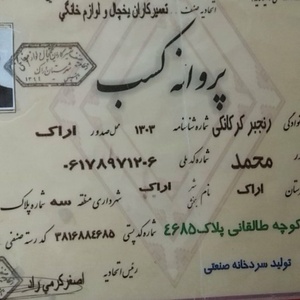 اتحادیه صنف تعمیرکاران یخچال و لوازم خانگی
پروانه کسب
رنجبر کرکانکی شماره شناسنامه ۱۳۰۳ محل صدور اراک
محمد شماره کد ملی ۰۶۱۷۸۹۷۱۲۰۶
اراک نام شهر اراک شهرداری منطقه سه شماره پلاک
کوچه طالقانی پلاک ۴۶۸۵ شماره کد پستی ۳۸۱۶۸۸۴۶۸۵ کد رسته صنفی
تولید سردخانه صنعتی
رئیس اتحادیه
اصغر کرمی راد